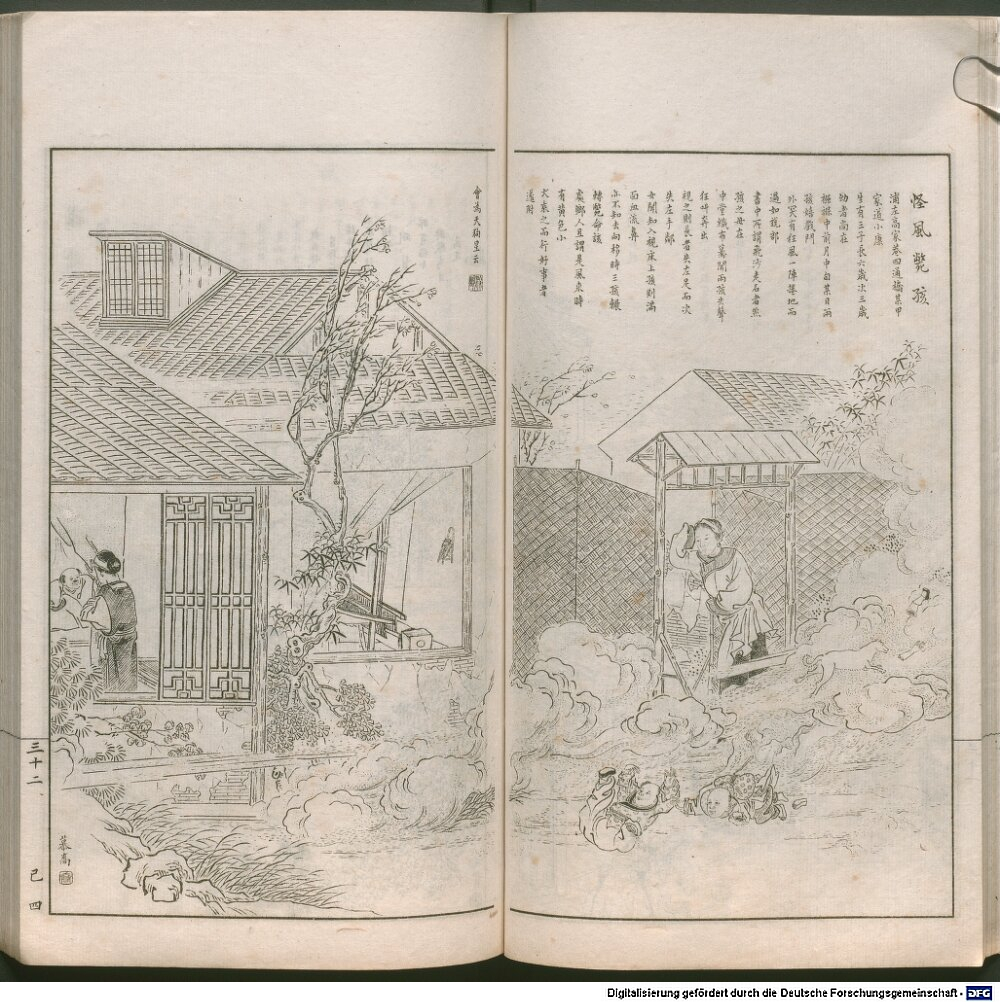 怪風斃孩
浦左高家巷四通橋某甲
家道小康
生有三子長六歲次三歲
幼者尚在
襁褓中前月中旬某日兩
孩嬉戲門
外突有狂風一陣捲地而
過如說部
書中所謂飛沙走石者然
孩之母在
中堂織布驀聞兩孩失聲
狂呼奔出
視之則長者失左足而次
失左手部
女聞知入視床上孩則滿
面血流鼻
亦不知去向移時三孩輾
轉斃命該
處鄉人且謂是風來時
有黃色小
犬乘之而行好事者
遂附
會為天狗星云
三十二
慕喬
己四
Digitalisierung gefördert durch die Deutsche Forschungsgemeinschaft - DFG